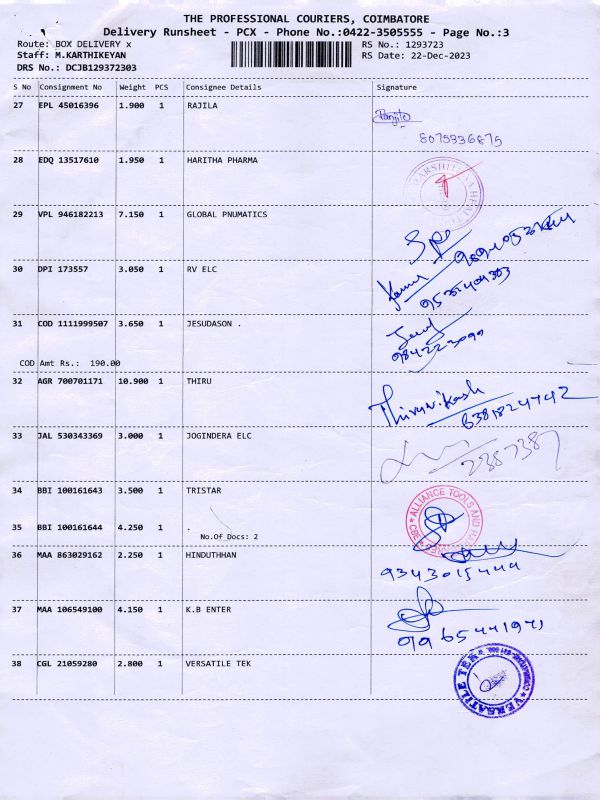 THE PROFESSIONAL COURIERS, COIMBATORE
Delivery Runsheet - PCX - Phone No.:0422-3505555 - Page No.:3
Route: BOX DELIVERY x RS No.: 1293723
Staff: M.KARTHIKEYAN RS Date: 22-Dec-2023
DRS No.: DCJB129372303
S No Consignment No Weight PCS Consignee Details Signature
27 EPL 45016396 1.900 1 RAJILA
8075336875
28 EDQ 13517610 1.950 1 HARITHA PHARMA
29 VPL 946182213 7.150 1 GLOBAL PNUMATICS
30 DPI 173557 3.050 1 RV ELC
31 COD 1111999507 3.650 1 JESUDASON .
COD Amt Rs.: 190.00
32 AGR 700701171 10.900 1 THIRU
6381824742
33 JAL 530343369 3.000 1 JOGINDERA ELC
2387387
34 BBI 100161643 3.500 1 TRISTAR
ALLIANCE TOOLS AND
35 BBI 100161644 4.250 1 .
No.Of Docs: 2
36 MAA 863029162 2.250 1 HINDUTHHAN
9343015444
37 MAA 106549100 4.150 1 K.B ENTER
9965441971
38 CGL 21059280 2.800 1 VERSATILE TEK
VERSATILE TEK